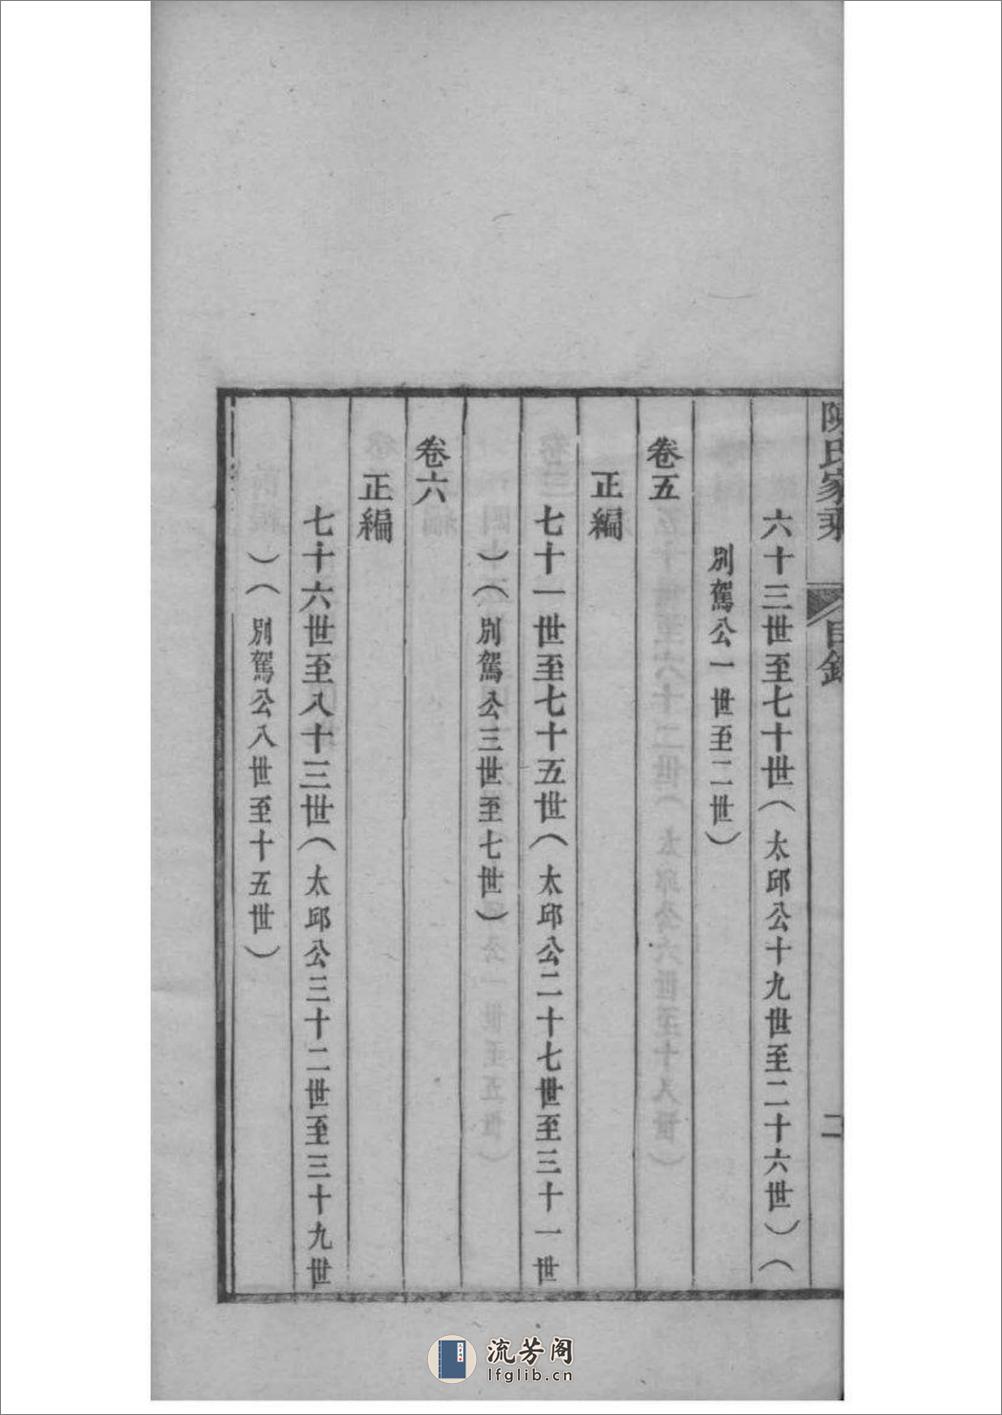 陳氏家乘 目錄 二
六十三世至七十世（太邱公十九世至二十六世）（
別駕公一世至二世）
卷五
正編
七十一世至七十五世（太邱公二十七世至三十一世
）（別駕公三世至七世）
卷六
正編
七十六世至八十三世（太邱公三十二世至三十九世
）（別駕公八世至十五世）
流芳阁
lfglib.cn